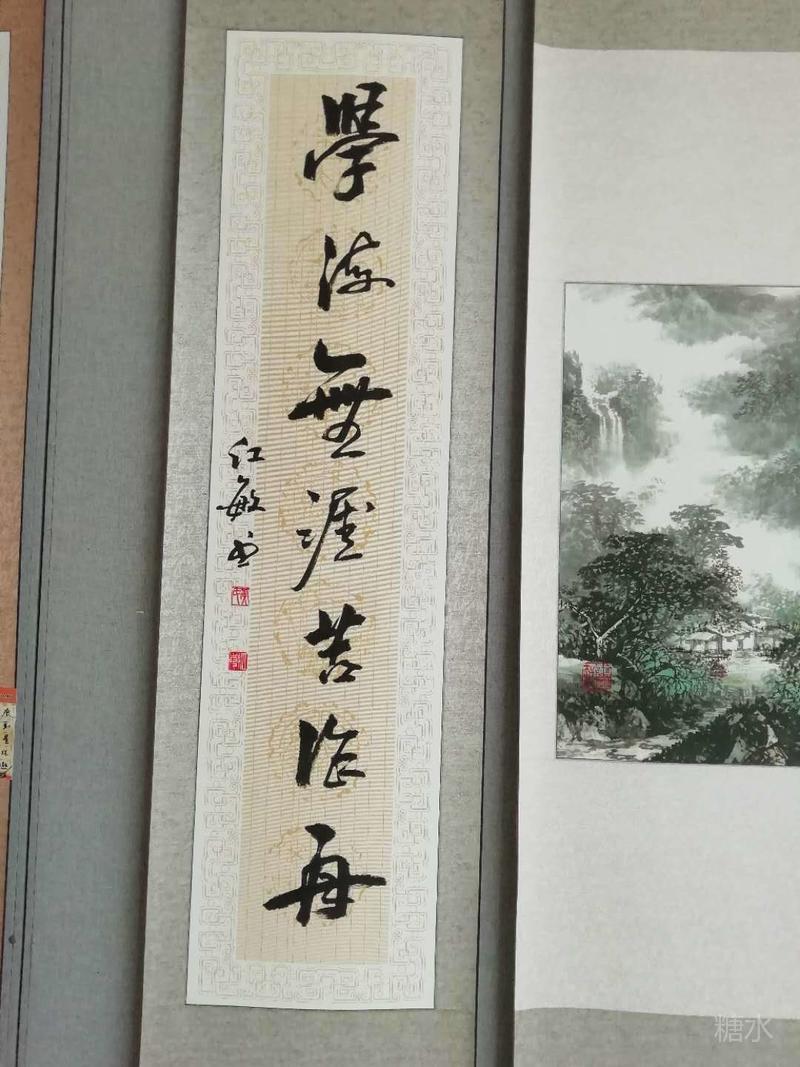 學海無涯苦作舟
红敏书
糖水